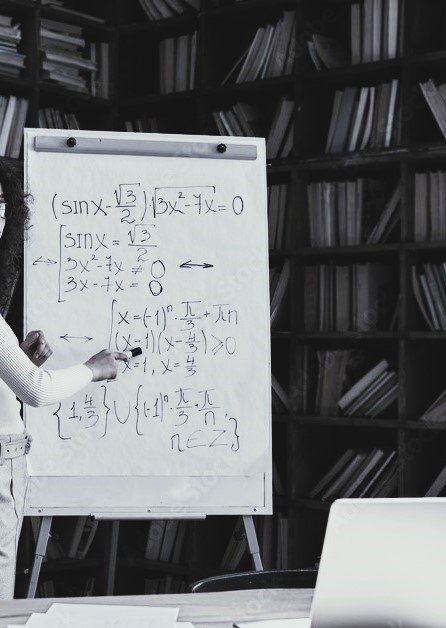 (sinx-√3/2)√(3x²-7x)=0
↔ [sinx=√3/2
3x²-7x≠0 ↔
3x-7x=0
[x=(-1)ⁿ·π/3+πn
↔ (x-1)(x-4/3)⩾0
x=1, x=4/3
{1,4/3}∪{(-1)ⁿ·π/3·π/n,
n∈Z}